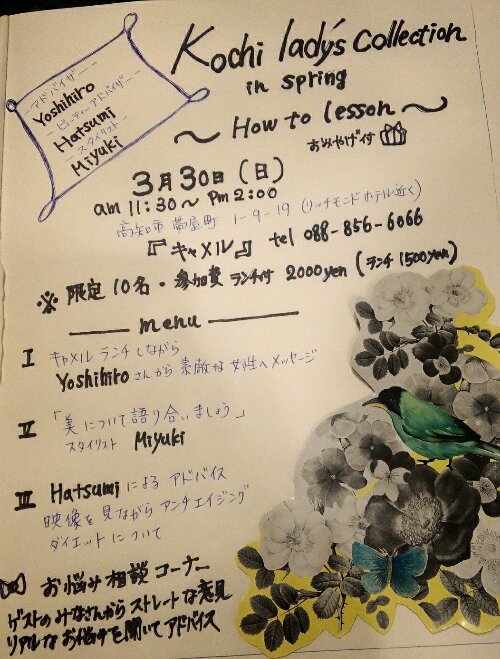 アドバイザー
Yoshihiro
ビューティーアドバイザー
Hatsumi
スタイリスト
Miyuki
Kochi lady's Collection
in spring
～ How to lesson ～
おみやげ付
3月30日(日)
am 11:30～ Pm 2:00
高知市 帯屋町 1-9-19 (リッチモンドホテル近く)
『キャメル』 tel 088-856-6066
※ 限定10名・参加費 ランチ付 2000yen (ランチ1500yen)
menu
I キャメルランチしながら
Yoshihiroさんから素敵な女性へメッセージ
II 「美について語り合いましょう」
スタイリスト Miyuki
III Hatsumiによるアドバイス
映像を見ながらアンチエイジング
ダイエットについて
お悩み相談コーナー
ゲストのみなさんからストレートな意見
リアルなお悩みを聞いてアドバイス